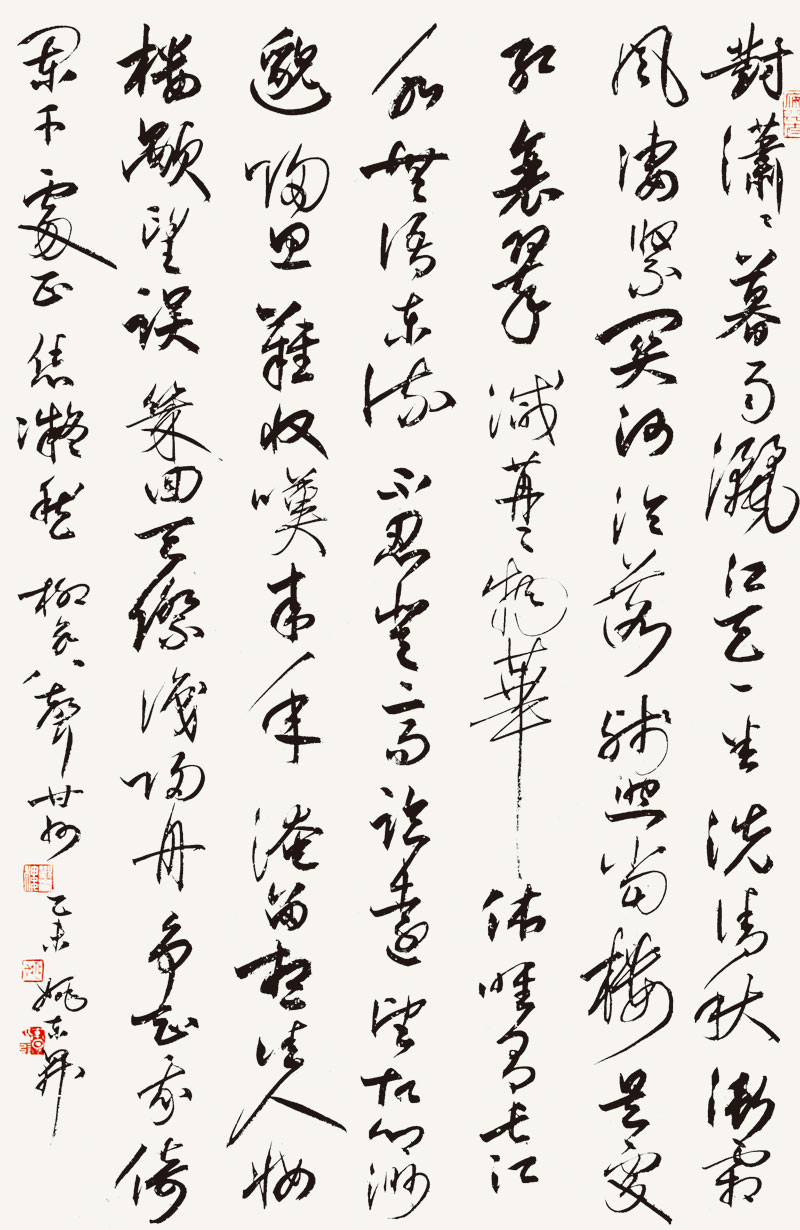 對瀟々暮雨灑江天一番洗清秋漸霜
風淒緊關河冷落殘照當樓是處
紅衰翠減苒々物華休唯有長江
水無語東流不忍登高臨遠望故鄉渺
邈歸思難收嘆年來淹留想佳人妝
樓顒望誤幾回天際識歸舟爭知我倚
闌干處正恁凝愁 柳永八聲甘州 乙未 姚東